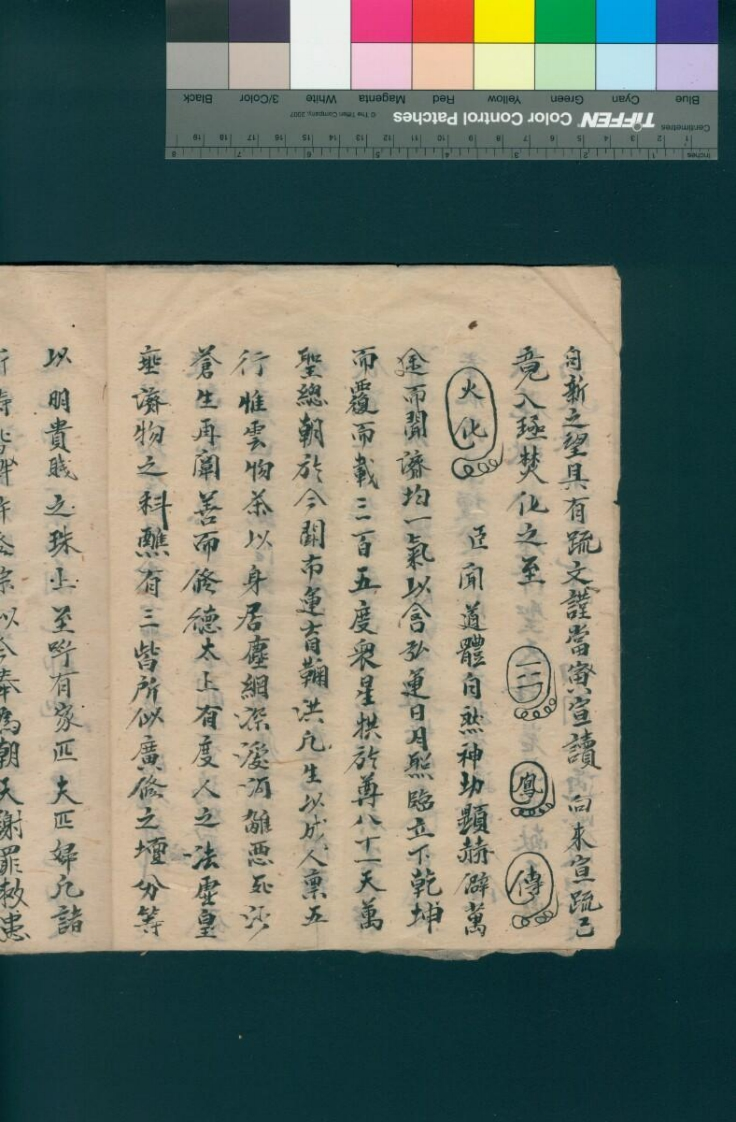 TIFFEN Color Control Patches
© The Tiffen Company, 2007
Centimetres
Inches
Blue Cyan Green Yellow Red Magenta White 3/Color Black
自新之望具有疏文謹當宣讀 向來宣疏已
竟入𤥨焚化之至 一二 鳳 傳
火化 臣聞道體自然神功顯赫僻萬
途而開濟均一氣以含弘運日月照臨立下乾坤
而覆而載三百五度衆星拱於尊八十一天萬
聖總朝於今開市運育鞠洪凡生以成人禀五
行惟雲物茶以身居塵網深漫洞離悪死沙
蒼生再闡善而修德太上有度人之法虛皇
垂濟物之科醮有三皆所似廣修之壇分等
以明貴賤之珠上至所有家匹夫匹婦凡諸
以今奉為朝天謝罪救患